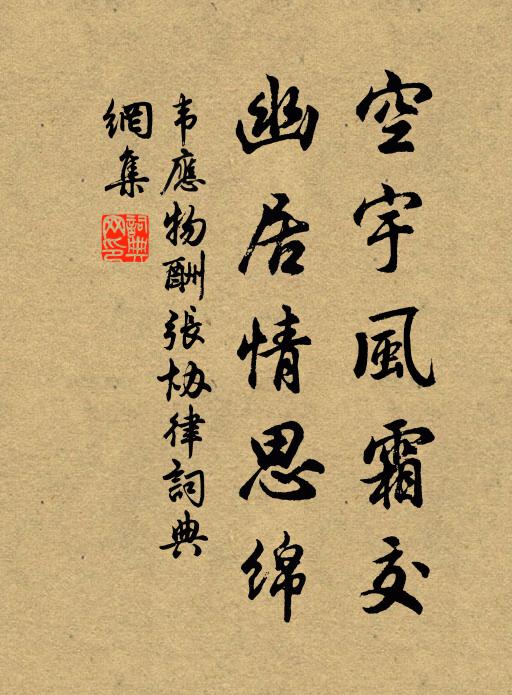 空宇風霜交
幽居情思綿
韦應物酬張协律詞典
網集
詞典網印